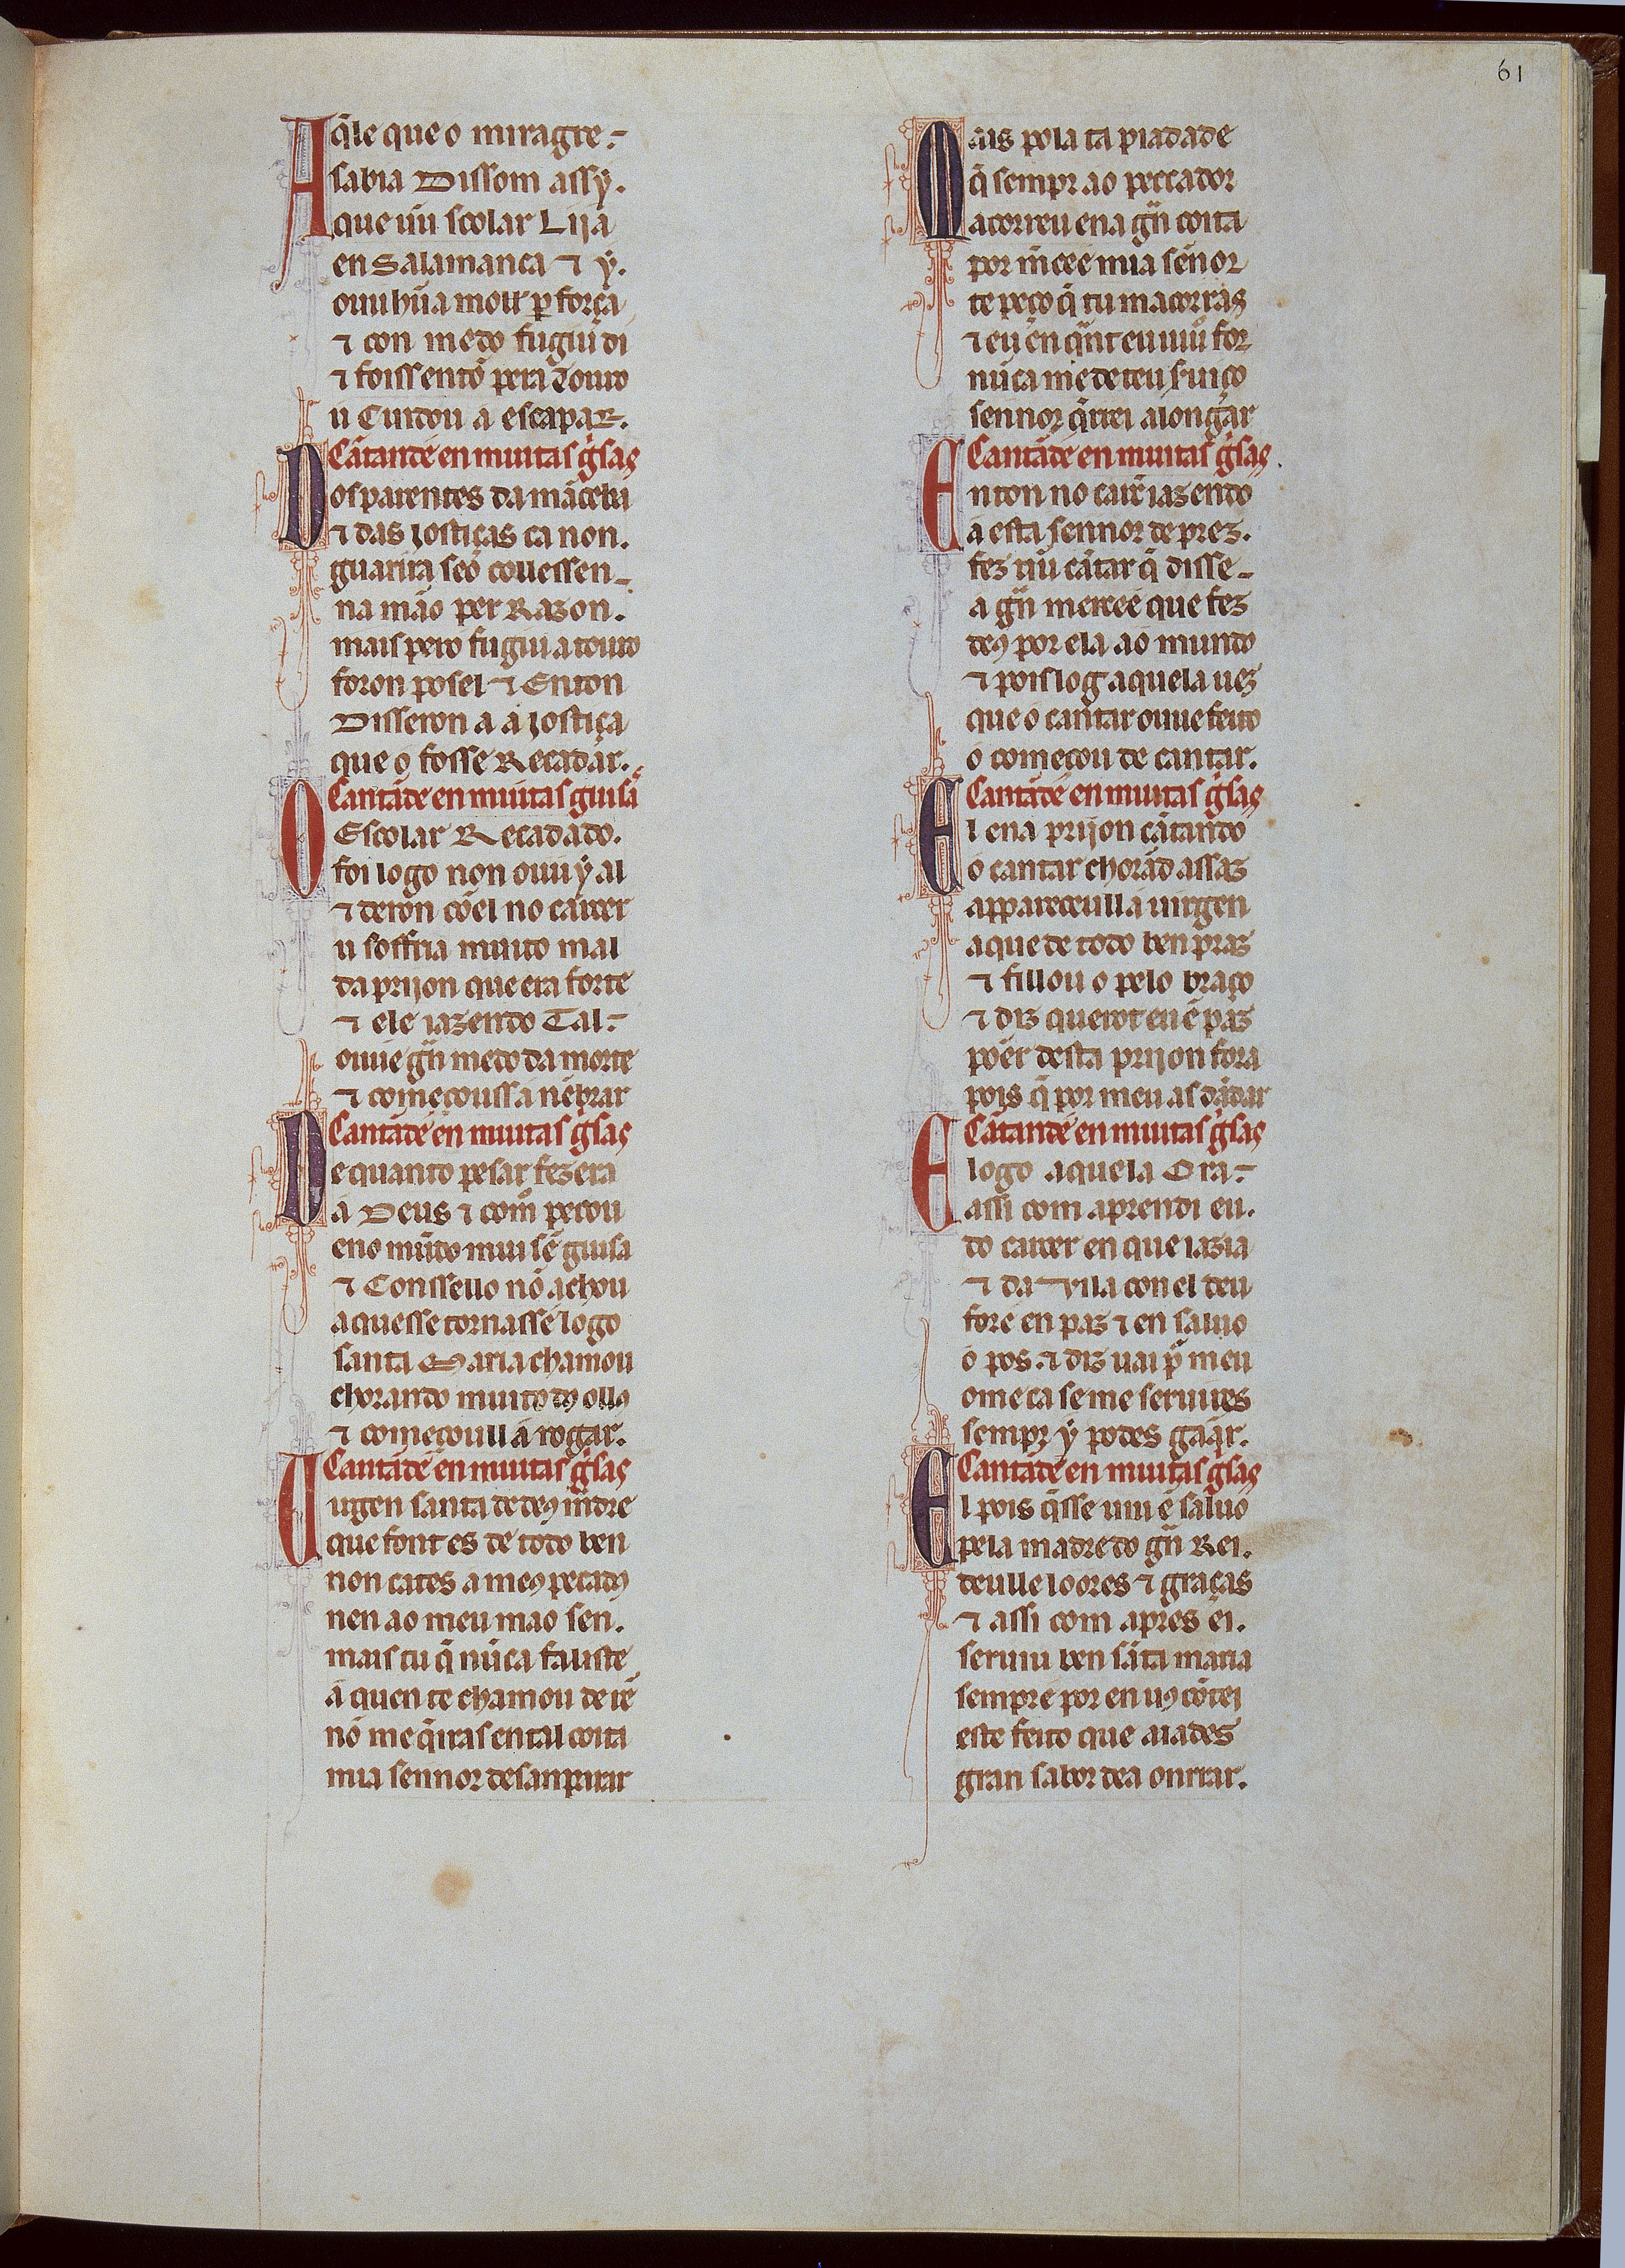 61
Aq̃le que o miragre
sabia Dissom assy.
que vũ scolar Lija
en Salamanca ⁊ y.
ouu hũa moll꞉ ꝑ força
⁊ con medo fugiu di
⁊ foiss entõ pera Touro
u Cuidou a escapar.
Cãtand e en muitas g̃sas
Dos parentes da mãceba
⁊ das Jostiças ca non.
guarira seo couessen
na mão per Razon.
mais pero fugiu a touro
foron pos el ⁊ Enton
Disseron a a Jostiça
que o fosse Recadar.
Cantãd e en muitas guisã
O Escolar Recadado.
foi logo non ouu y al
⁊ deron cõel no carcer
u soffria muito mal
da prijon que era forte
⁊ ele iazendo Tal
ouue gñ medo da morte
⁊ começouss a nẽbrar
Cantãd e en muitas g̃sas
De quanto pesar fezera
a Deus ⁊ com̃ pecou
eno mũdo mui sẽ guisa
⁊ Conssello nõ achou
a quesse tornasse logo
santa Maria chamou
chorando muito dos ollos
⁊ começoull a rogar.
Cantãd e en muitas g̃sas
Uirgen santa de deus m̃dre
que font es de todo ben
non cates a meus pecados
nen ao meu mao sen.
mais tu q̃ nũca faliste
a quen te chamou de rẽ
nõ me q̃iras en tal coita
mia sennor desanparar
Mais pola ta piadade
q̃ sempr ao peccador
acorreu ena gñ coita
por m̃cee mia sẽnor
te peço q̃ tu m acorras
⁊ eu en q̃nt eu uiuo for
nũca me de teu s̃uiço
sennor q̃rrei alongar
Cantãd e en muitas g̃sas.
Enton no carcer iazendo
a esta sennor de prez.
fez ũu cãtar q̃ disse
a gñ mercee que fez
deus por ela ao mundo
⁊ pois log aquela uez
que o cantar ouue feito
o começou de cantar.
Cantãd e en muitas g̃sas
El ena prijon cãtando
o cantar chorãd assaz
appareceull a uirgen
a que de todo ben praz
⁊ fillou o pelo braço
⁊ diz querot eu ẽ paz
põer desta prijon fora
pois q̃ por meu as d ãdar
Cãtand e en muitas g̃sas
E logo aquela Ora
assi com aprendi eu.
do carcer en que iazia
⁊ da vila con el deu
fore en paz ⁊ en saluo
o pos. ⁊ diz uai ꝑo meu
ome ca se me seruires
sempr y podes gãar.
Cantãd e en muitas g̃sas
El pois q̃sse uiu ẽ saluo
pela madre do gñ Rei.
deulle loores ⁊ graças
⁊ assi com apres ei.
seruiu ben sãta maria
sempre por en uos cõtei
este feito que aiades
gran sabor dea onrrar.